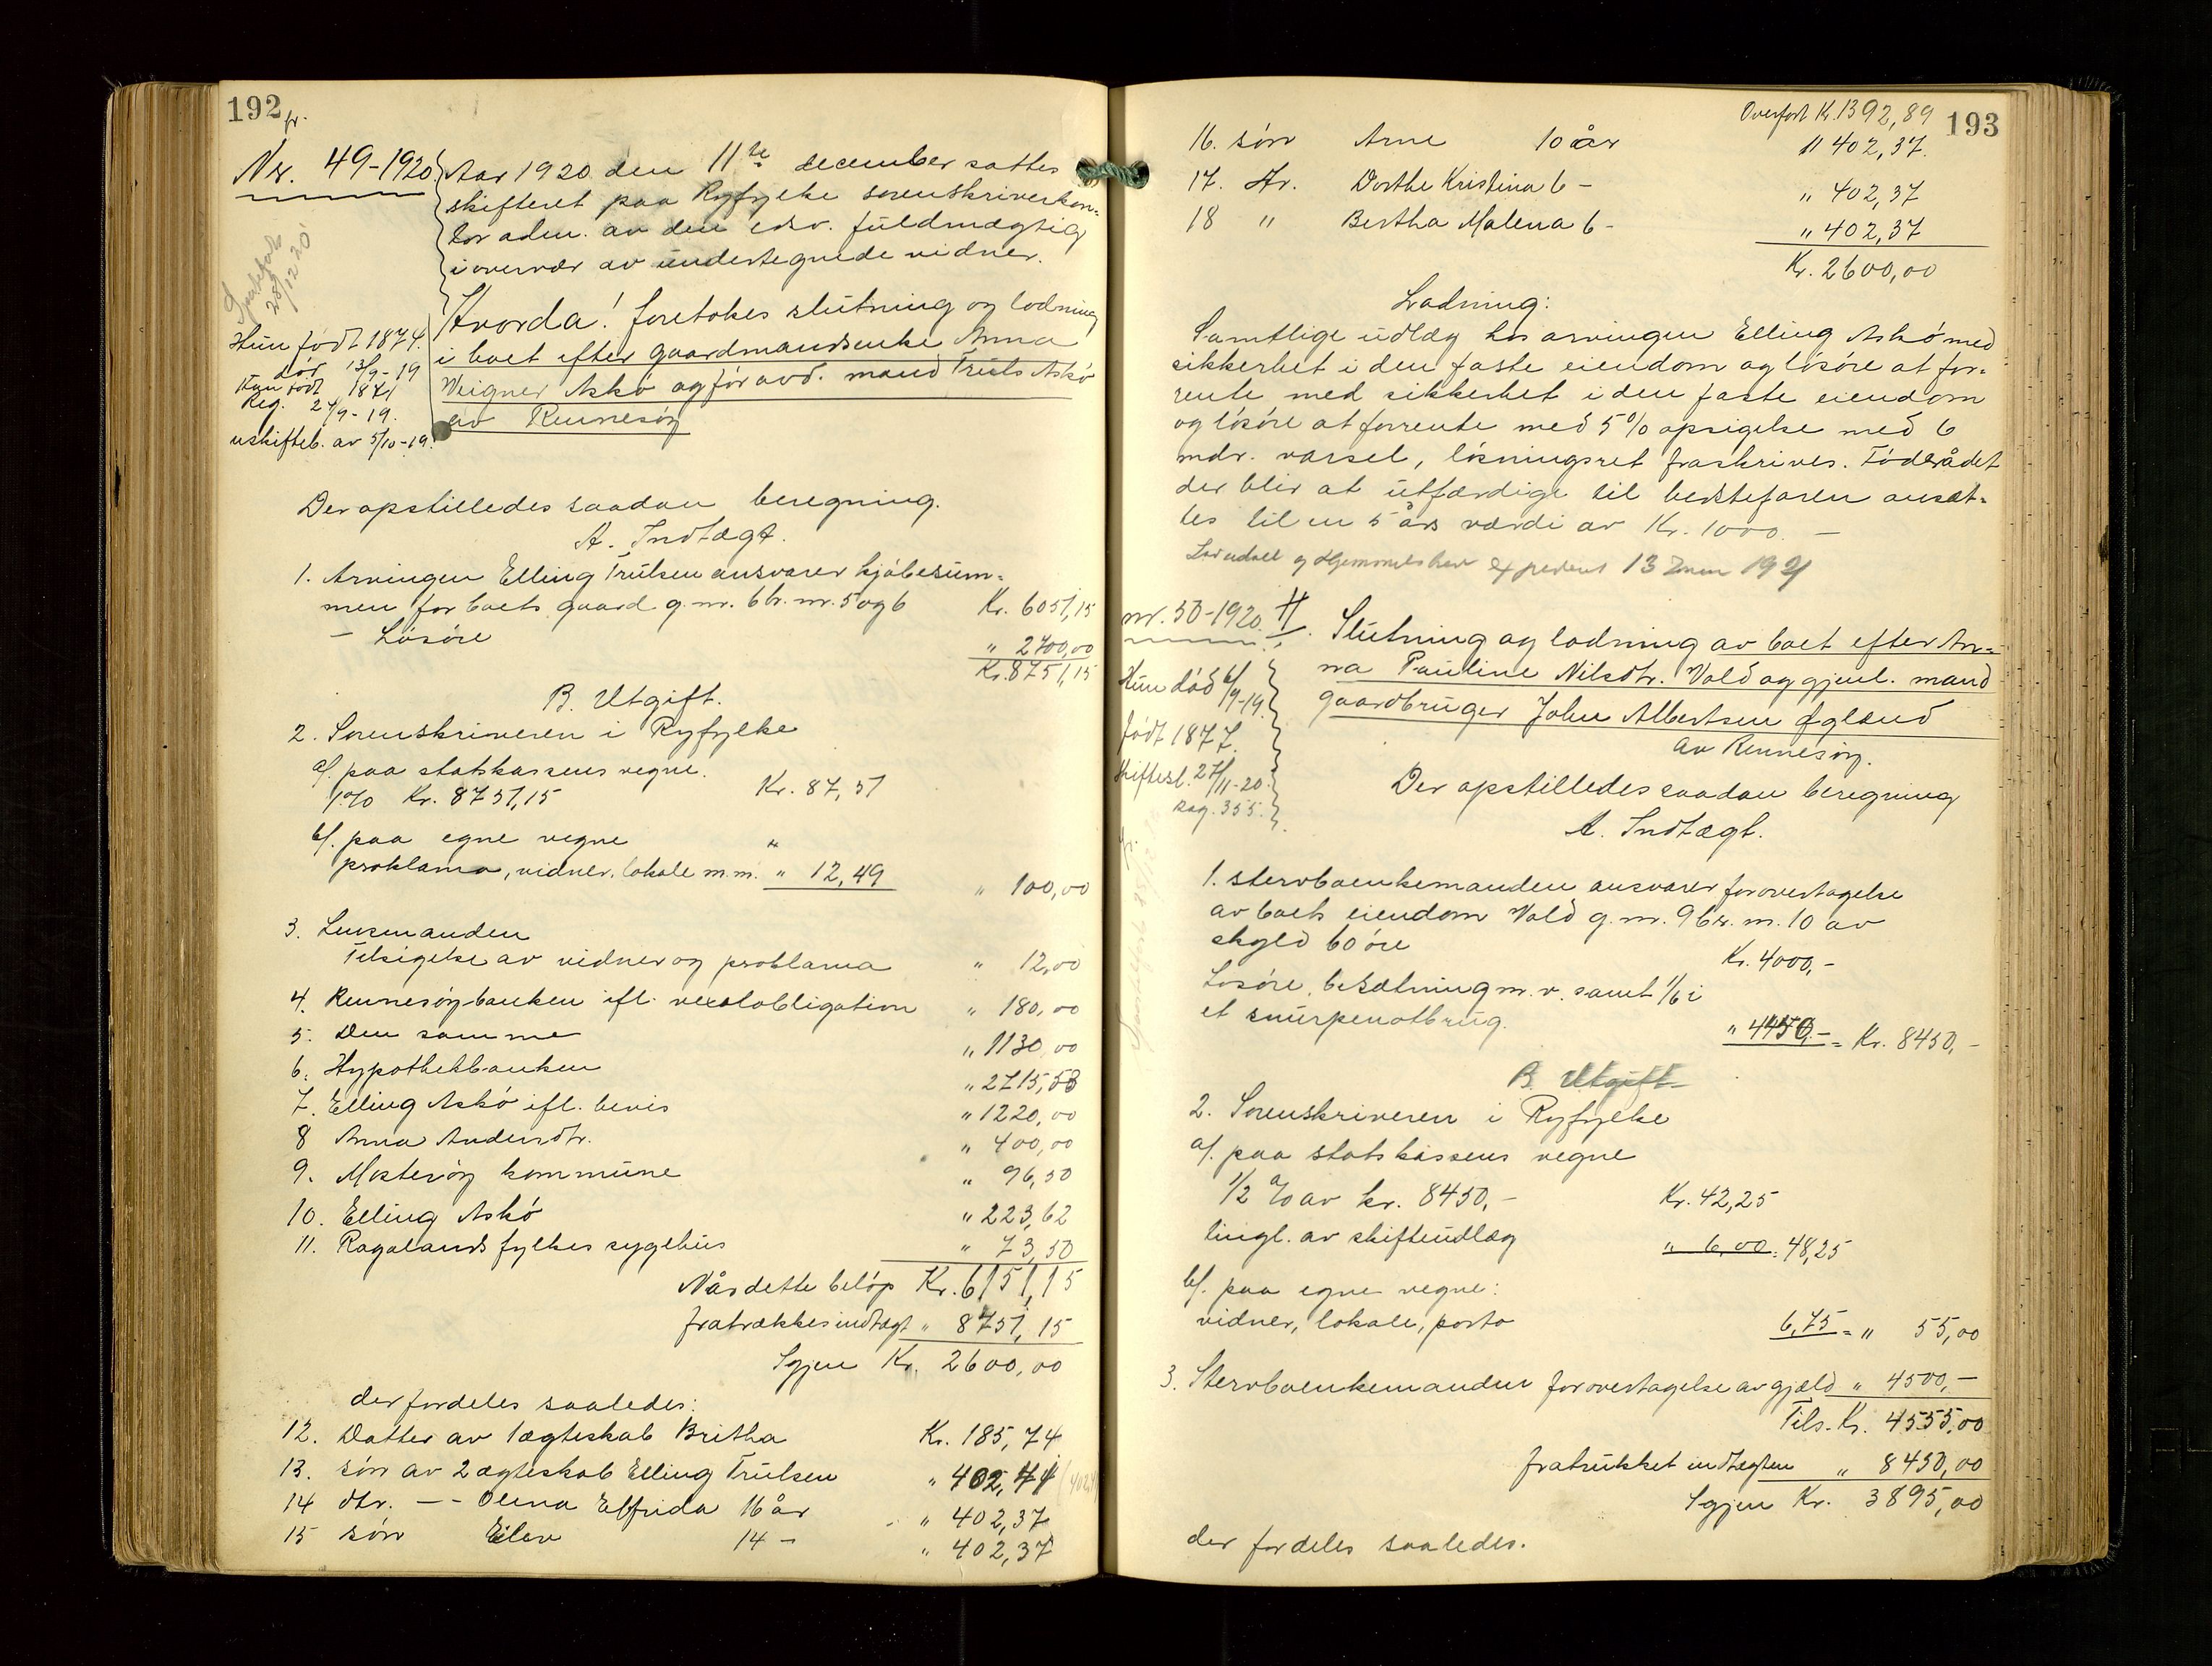 192
fr.
Nr. 49-1920.
Aar 1920 den 11te december sattes
skifteret paa Ryfylke sorenskriverkon-
tor adm. av den edsv. fuldmægtig
i overvær av undertegnede vidner.
28/12 20
Hvorda! foretokes slutning og lodning
i boet efter gaardmandsenke Anna
Weigner Askø og før avd. mand Truls Askø
av Rennesøy
Hun født 1874.
død 13/9-19
Han født 1871
Reg. 27/9-19.
uskifteb. av 5/10-19.
Der opstilledes saadan beregning.
A. Indtægt.
1. Arvingen Elling Trulsen ansvarer kjøbesum-
men for boets gaard g.nr. 6 br. nr. 5 og 6 Kr. 6051,15
- Løsøre " 2700,00
Kr. 8751,15
B. Utgift.
2. Sorenskriveren i Ryfylke
a/. paa statskassens vegne.
1% Kr. 8751,15 Kr. 87,51
b/. paa egne vegne "
proklama, vidner, lokale m.m. " 12,49 " 100,00
3. Lensmanden
Tilsigelse av vidner og proklama " 12,00
4. Rennesøybanken ifl. vexelobligation " 180,00
5. Den samme " 1130,00
6. Hypothekbanken " 2715,53
7. Elling Askø ifl. bevis " 1220,00
8 Anna Andersdtr. " 400,00
9. Mosterøy kommune " 96,50
10. Elling Askø " 223,62
11. Rogalands fylkes sygehus " 73,50
Når dette beløp Kr. 6151,15
fratrækkes indtægt " 8751,15
Igjen Kr. 2600,00
der fordeles saaledes:
12. Datter av 1 ægteskab Britha Kr. 185,74
13. søn av 2 ægteskab Elling Trulsen " 402,41
14 dtr. - - Olena Elfrida 16 år " 402,37
15 søn Eilev 14 - " 402,37
193
Overført Kr. 1392,89
16. søn Arne 10 år " 402,37.
17. dtr. Dorthe Kristina 6 - " 402,37
18 " Bertha Malena 6 - " 402,37
Kr. 2600,00
Lodning:
Samtlige udlæg hos arvingen Elling Askø med
sikkerhet i den faste eiendom og løsøre at for-
rente med sikkerhet i den faste eiendom
og løsøre at forrente med 5% opsigelse med 6
mdr. varsel, løsningsret fraskrives. Føderådet
der blir at utfærdige til bedstefaren ansæt-
tes til en 5 års værdi av Kr. 1000. -
og Hjemmelsbrev expedert 13 1921
nr. 50-1920.
Slutning og lodning av boet efter An-
na Pauline Nilsdtr. Vold og gjenl. mand
gaardbruger John Albertsen Øgland
av Rennesøy.
Hun død 6/9-19.
født 1877.
Skiftesl. 27/11-20.
Reg. 355.
Der opstilledes saadan beregning
A. Indtægt.
1. Stervboenkemanden ansvarer for overtagelse
av boets eiendom Vold g.nr. 9 br. nr. 10 av
skyld 60 øre Kr. 4000,-
Løsøre, besætning m.v. samt 1/6 i
et snurpenotbrug. " 4450,- = Kr. 8450,-
B. Utgift
2. Sorenskriveren i Ryfylke
a/. paa statskassens vegne
1/2 % av kr. 8450,- Kr. 42,25
tingl. av skifteudlæg " 6,00 = 48,25
b/. paa egne vegne:
vidner, lokale, porto 6,75 = " 55,00
3. Stervboenkemanden for overtagelse av gjæld " 4500,-
Tils. Kr. 4555,00
fratrukket indtægten " 8450,00
Igjen Kr. 3895,00
der fordeles saaledes.